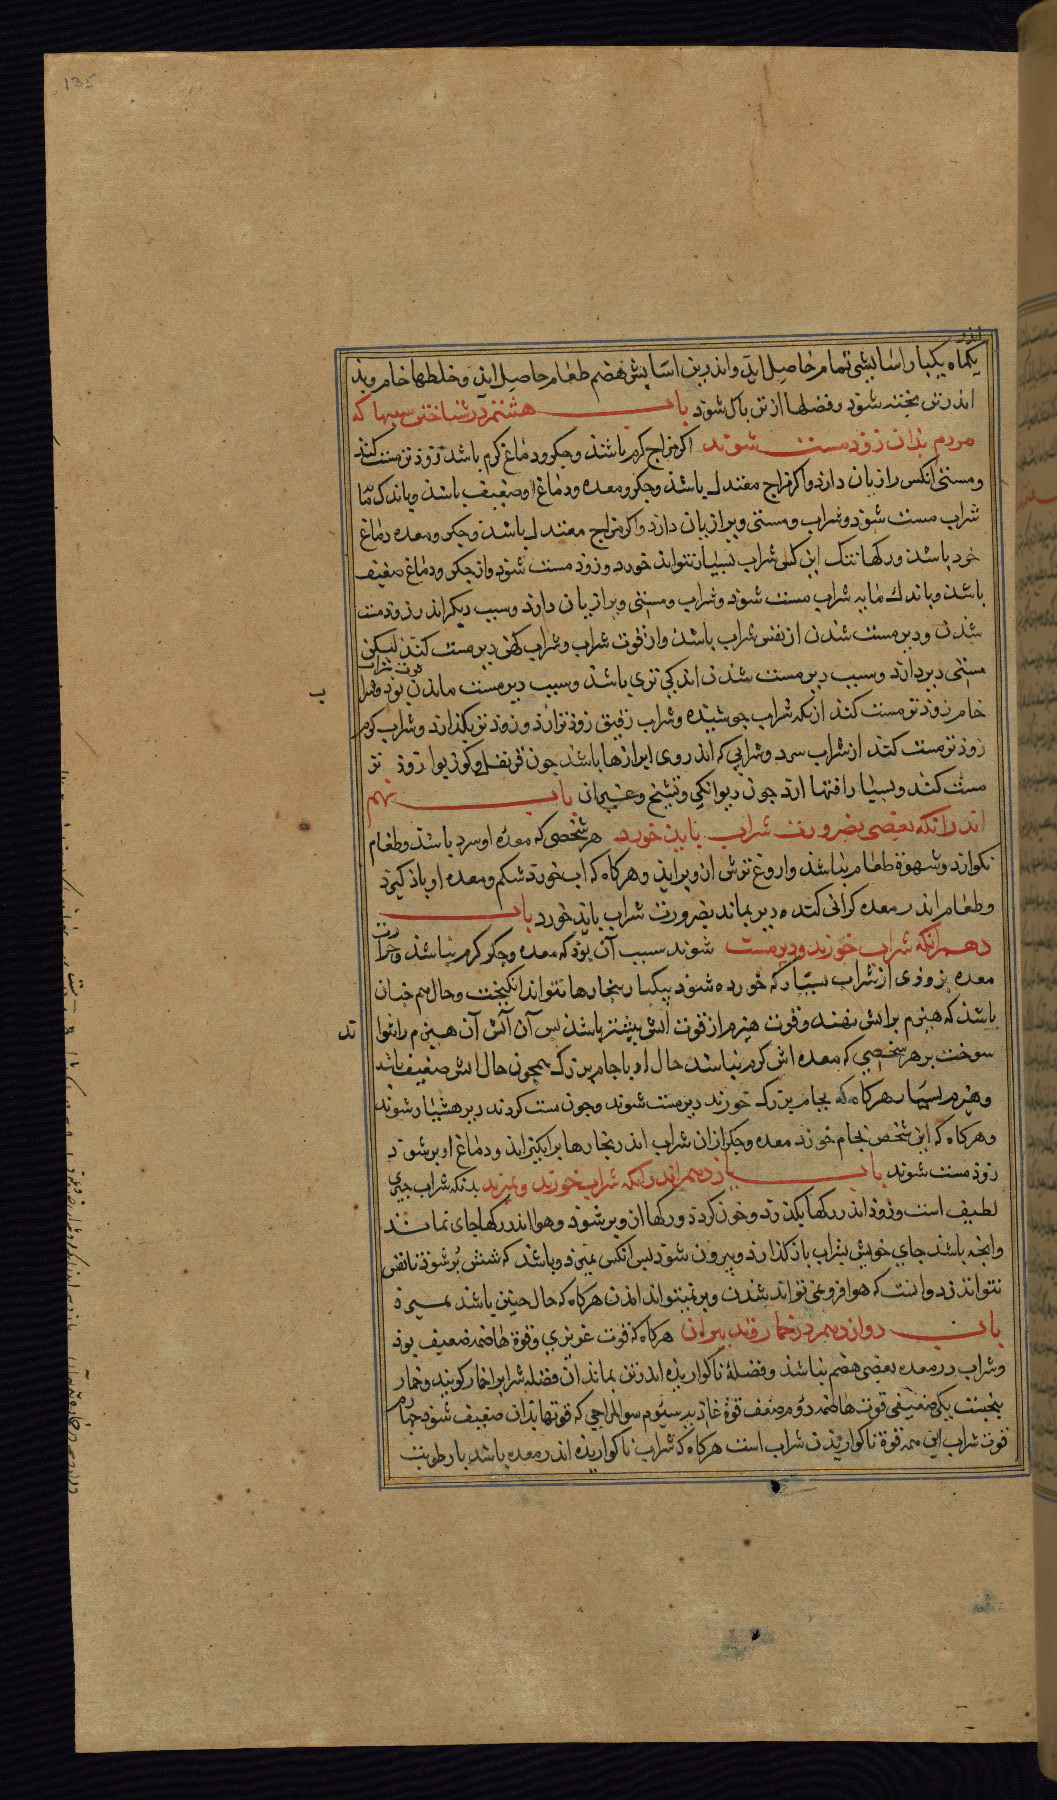 135
اندر
یکماه یکبار اسایشی تمام حاصل اید واندرین اسایش هضم طعام حاصل اید وخلطها خام وبد
اندر تن پخته شوذ وفضلها از تن پاک شوذ باب هشتم در شناختن سببها که
مردم بدان زود مست شوند اکر مزاج کرم باشد وجکر ودماغ کرم باشد زوذ تر مست کند
ومستی انکس را زیان دارد واکر مزاج معتدل باشد وجکر ومعده ودماغ او ضعیف باشد وباندک
شراب مست شوذ وشراب ومستی ویرا زیان دارد واکر مزاج معتدل باشد وجکر ومعده دماغ
خود باشد ورکها تنک این کس شراب بسیار نتواند خورد وزوذ مست شوذ واز جکر ودماغ ضعیف
باشد وباندک مایه شراب مست شوذ وشراب ومستی ویرا زیان دارد وسبب دیکر اندر زوذ مست
شدن ودیر مست شدن از نفس شراب باشد واز قوت شراب وشراب کهن دیر مست کند لیکن
مستی دیر دارد وسبب دیر مست شدن اندکی تری باشد وسبب دیر مست ماندن قوت شراب بوذ
خام زوذ تر مست کند از انکه شراب جوشیده وشراب رقیق زوذ تر ارد وزوذ تر بکذارد وشراب کرم
زوذ تر مست کند از شراب سرد وشرابی که اندر وی ابزارها باشد جون قرنفل وکوز بوا زوذ تر
مست کند وبسیار افتها ارد جون دیوانکی وتشنج وغیر ان باب نهم
اندر انکه بعضی بضرورت شراب باید خورد هر شخصی که معده او سرد باشد وطعام
نکوارد وشهوة طعام نباشد واروغ ترش از وبراید وهرکاه که اب خورد شکم ومعده او باذ کیرد
وطعام اندر معده کرانی کند ودیر بماند بضرورت شراب باید خورد باب
دهم انکه شراب خورند ودیر مست شوند سبب آن بوذ که معده وجکر کرم نباشد وحرارت
معده زوذی از شراب بسیار که خورده شود بیکبار بخارها نتواند انکیخت وحال هم جنان
باشد که هیزم بر اتش نهند وقوت هیزم از قوت اتش بیشتر باشد پس آن آتش آن هیزم را نتوا
ند
سوخت پر هر شخصی که معده اش کرم نباشد حال او با جام بزرک همچون حال اتش ضعیف باشد
وهیزم بسیار هرکاه که بجام بزرک خورند دیر مست شوند وجون مست کردند دیر هشیار شوند
وهرکاه که این شخص بجام خورد معده وجکر از ان شراب اندر بخارها بر انکیزاند ودماغ او پر شوذ
زوذ مست شوند باب یازدهم اندر انکه شراب خورند وبمیرند بدانکه شراب جیزی
لطیف است وزوذ اندر رکها بکذرد وخون کردد ورکها ازو پر شوذ وهوا اندر رکها جای نماند
وانجه باشد جای خویش بشراب باز کذارد وبیرون شوذ پس انکس بمیرد وباشد که شش پر شوذ تا نفس
نتواند زد وانست که هوا فرو نمی تواند شدن وبر نمیتواند امدن هرکاه که حال جنین باشد بمیرد
باب دوازدهم در خمار وتدبیر ان هرکاه که قوت غریزی وقوة هاضمه ضعیف بوذ
وشراب در معده بعضی هضم نباشد وفضلهٔ ناکواریذه اندر تن بماند ان فضله شراب را خمار کویند وخمار
پنجست یکی ضعیفی قوت هاضمه دوم ضعف قوة غاذیه سیوم سو المزاجی که قوتها بدان ضعیف شوذ جهارم
قوت شراب این همه قوة ناکواریذن شراب است هرکاه که شراب ناکواریذه اندر معده باشد با رطوبت